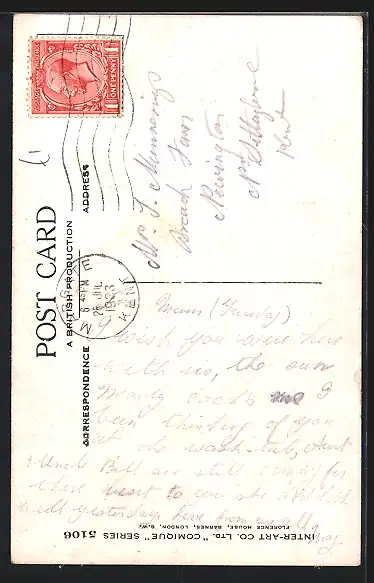 POST CARD
A BRITISH PRODUCTION
CORRESPONDENCE
ADDRESS
ONE PENNY
6 45 PM
JUL
1923
KENT
Mrs T.
Breach Farm
Newington
Nr Sittingbourne
Kent
Mum (Tuesday)
I wish you were here
with us, the sun
nearly cooks me I
been thinking of you
at the wash tub, Aunt
& Uncle Bill are still coming for
there
yesterday. Love from us all
INTER-ART CO. LTD. "COMIQUE" SERIES 5106
FLORENCE HOUSE, BARNES, LONDON, S.W.